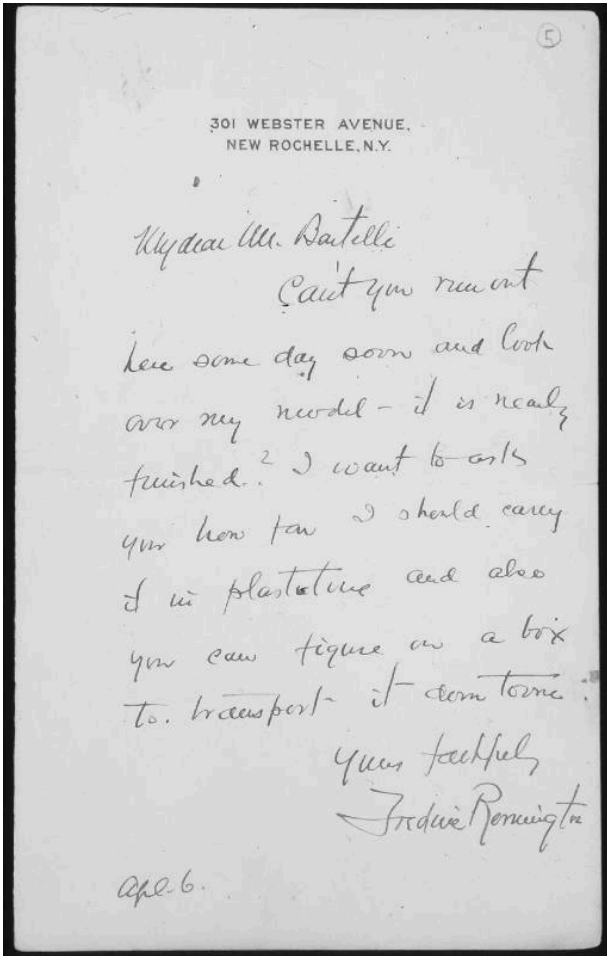 5
301 WEBSTER AVENUE,
NEW ROCHELLE, N.Y.
My dear Mr. Bertelli
Can't you run out
here some day soon and look
over my model - it is nearly
finished? I want to ask
you how far I should carry
it in plastoline and also
you can figure on a box
to. transport it down town.
Yours faithfully
Frederic Remington
Apl. 6.